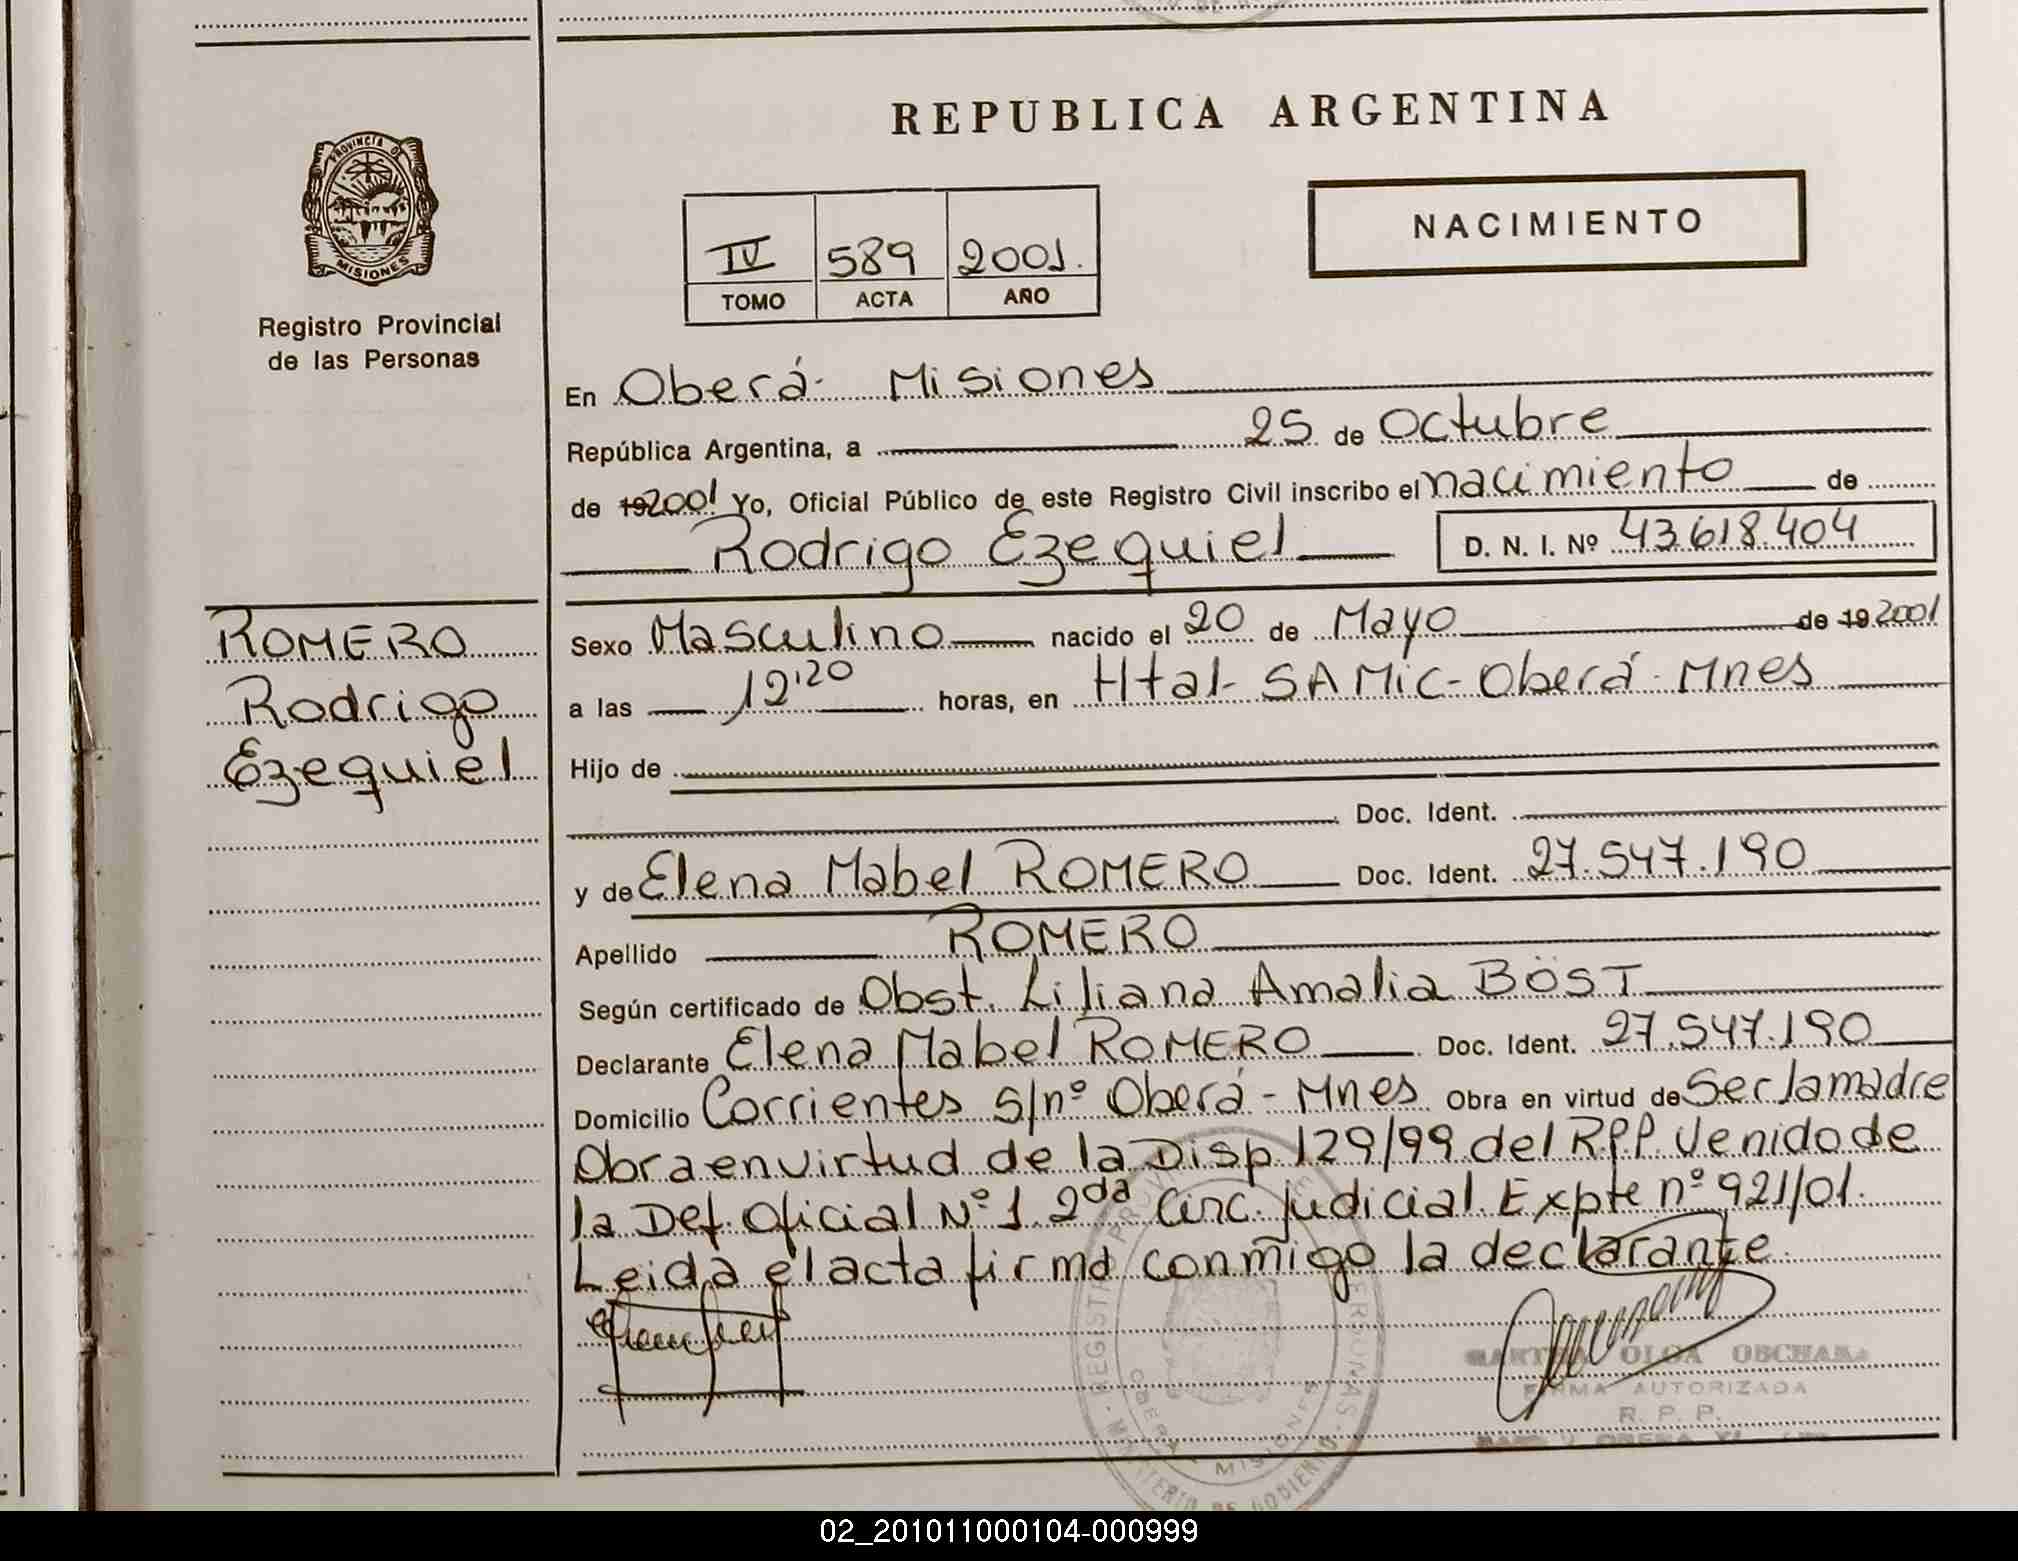 REPUBLICA ARGENTINA
PROVINCIA DE
MISIONES
Registro Provincial
de las Personas
IV 589 2001.
TOMO ACTA AÑO
NACIMIENTO
En Oberá- Misiones
República Argentina, a 25 de Octubre
de 19 2001 Yo, Oficial Público de este Registro Civil inscribo el nacimiento de
Rodrigo Ezequiel D. N. I. Nº 43.618.404
ROMERO
Rodrigo
Ezequiel
Sexo Masculino nacido el 20 de Mayo de 19 2001
a las 12'20 horas, en Htal- SAMic- Oberá- Mnes
Hijo de
Doc. Ident.
y de Elena Mabel ROMERO Doc. Ident. 27.547.190
Apellido ROMERO
Según certificado de Obst. Liliana Amalia BÖST
Declarante Elena Mabel ROMERO Doc. Ident. 27.547.190
Domicilio Corrientes s/nº Oberá - Mnes Obra en virtud de Ser la madre
Obra en virtud de la Disp 129/99 del R.P.P. Venido de
la Def. Oficial Nº 1 2da Circ. judicial. Expte nº 921/01.
Leida el acta firma conmigo la declarante.
OLGA
FIRMA AUTORIZADA
R. P. P.
OBERA MISIONES
02_201011000104-000999